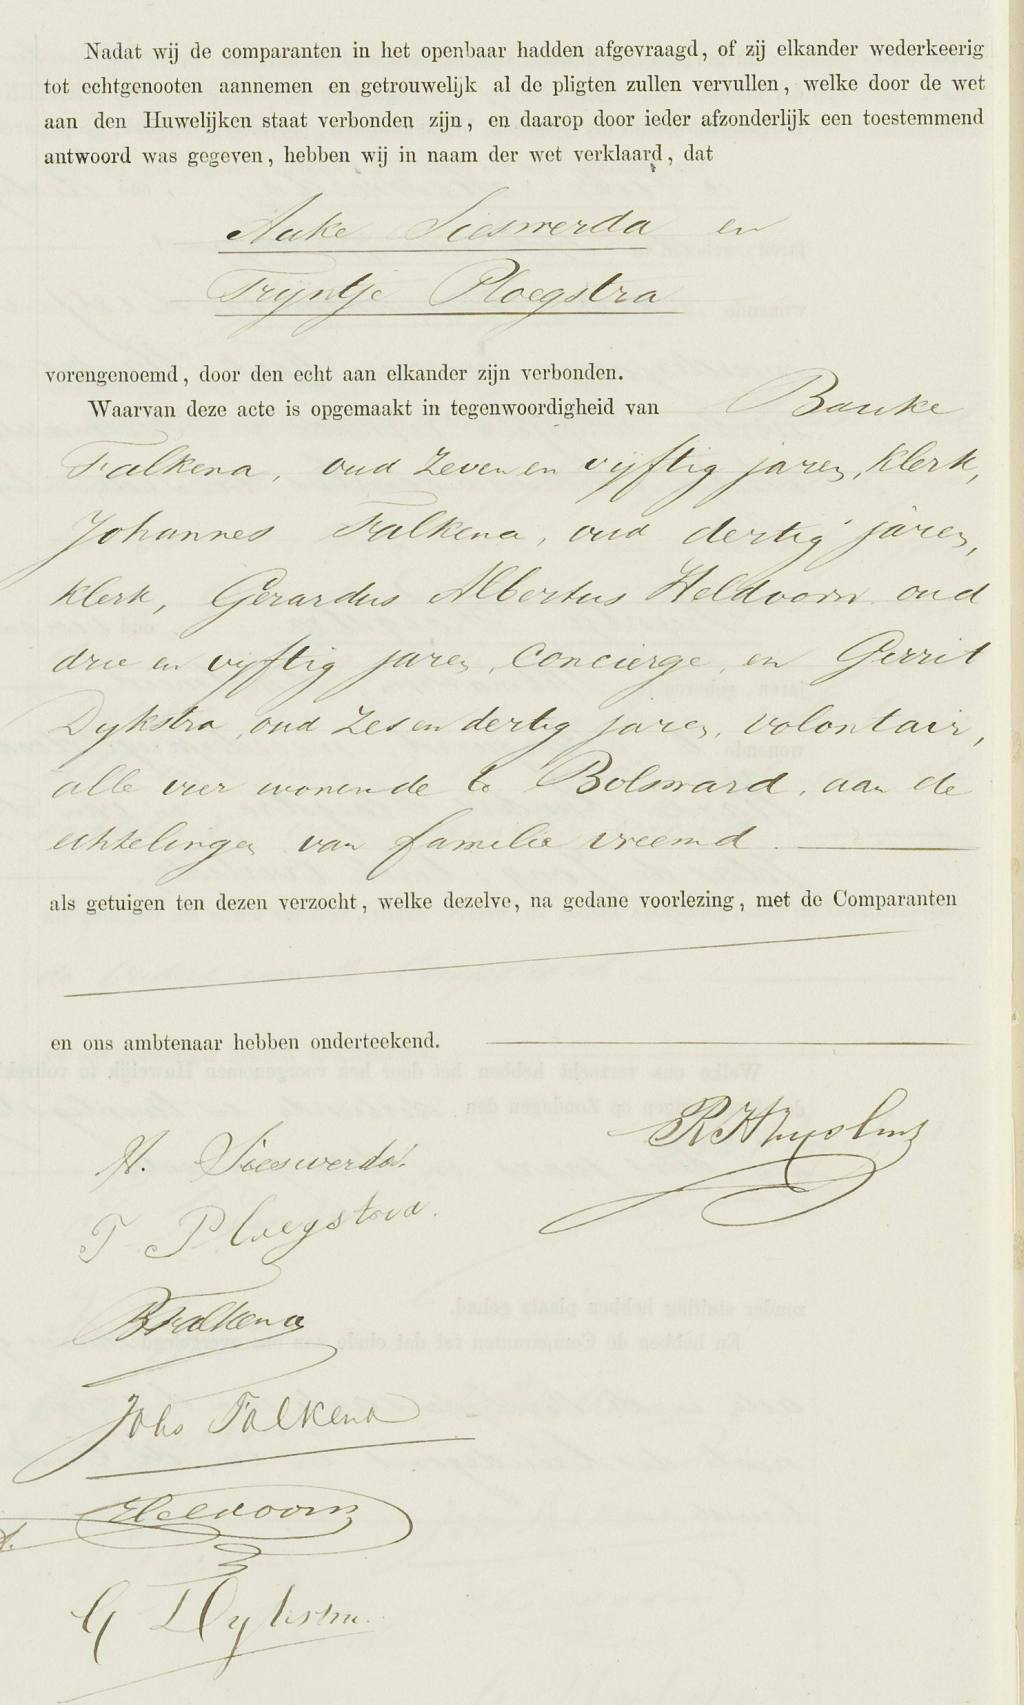 Nadat wij de comparanten in het openbaar hadden afgevraagd, of zij elkander wederkeerig
tot echtgenooten aannemen en getrouwelijk al de pligten zullen vervullen, welke door de wet
aan den Huwelijken staat verbonden zijn, en daarop door ieder afzonderlijk een toestemmend
antwoord was gegeven, hebben wij in naam der wet verklaard, dat
Auke Sieswerda en
Trijntje Ploegstra
vorengenoemd, door den echt aan elkander zijn verbonden.
Waarvan deze acte is opgemaakt in tegenwoordigheid van Bauke
Falkena, oud zeven en vijftig jaren, klerk,
Johannes Falkena, oud dertig jaren,
klerk, Gerardus Albertus Heldoorn oud
drie en vijftig jaren, concierge, en Gerrit
Dykstra, oud zes en dertig jaren, volontair,
alle vier wonende te Bolsward, aan de
echtelingen van familie vreemd.
als getuigen ten dezen verzocht, welke dezelve, na gedane voorlezing, met de Comparanten
en ons ambtenaar hebben onderteekend.
A. Sieswerda.
T Ploegstra.
B Falkena
Johs Falkena
Heldoorn
G Dykstra.